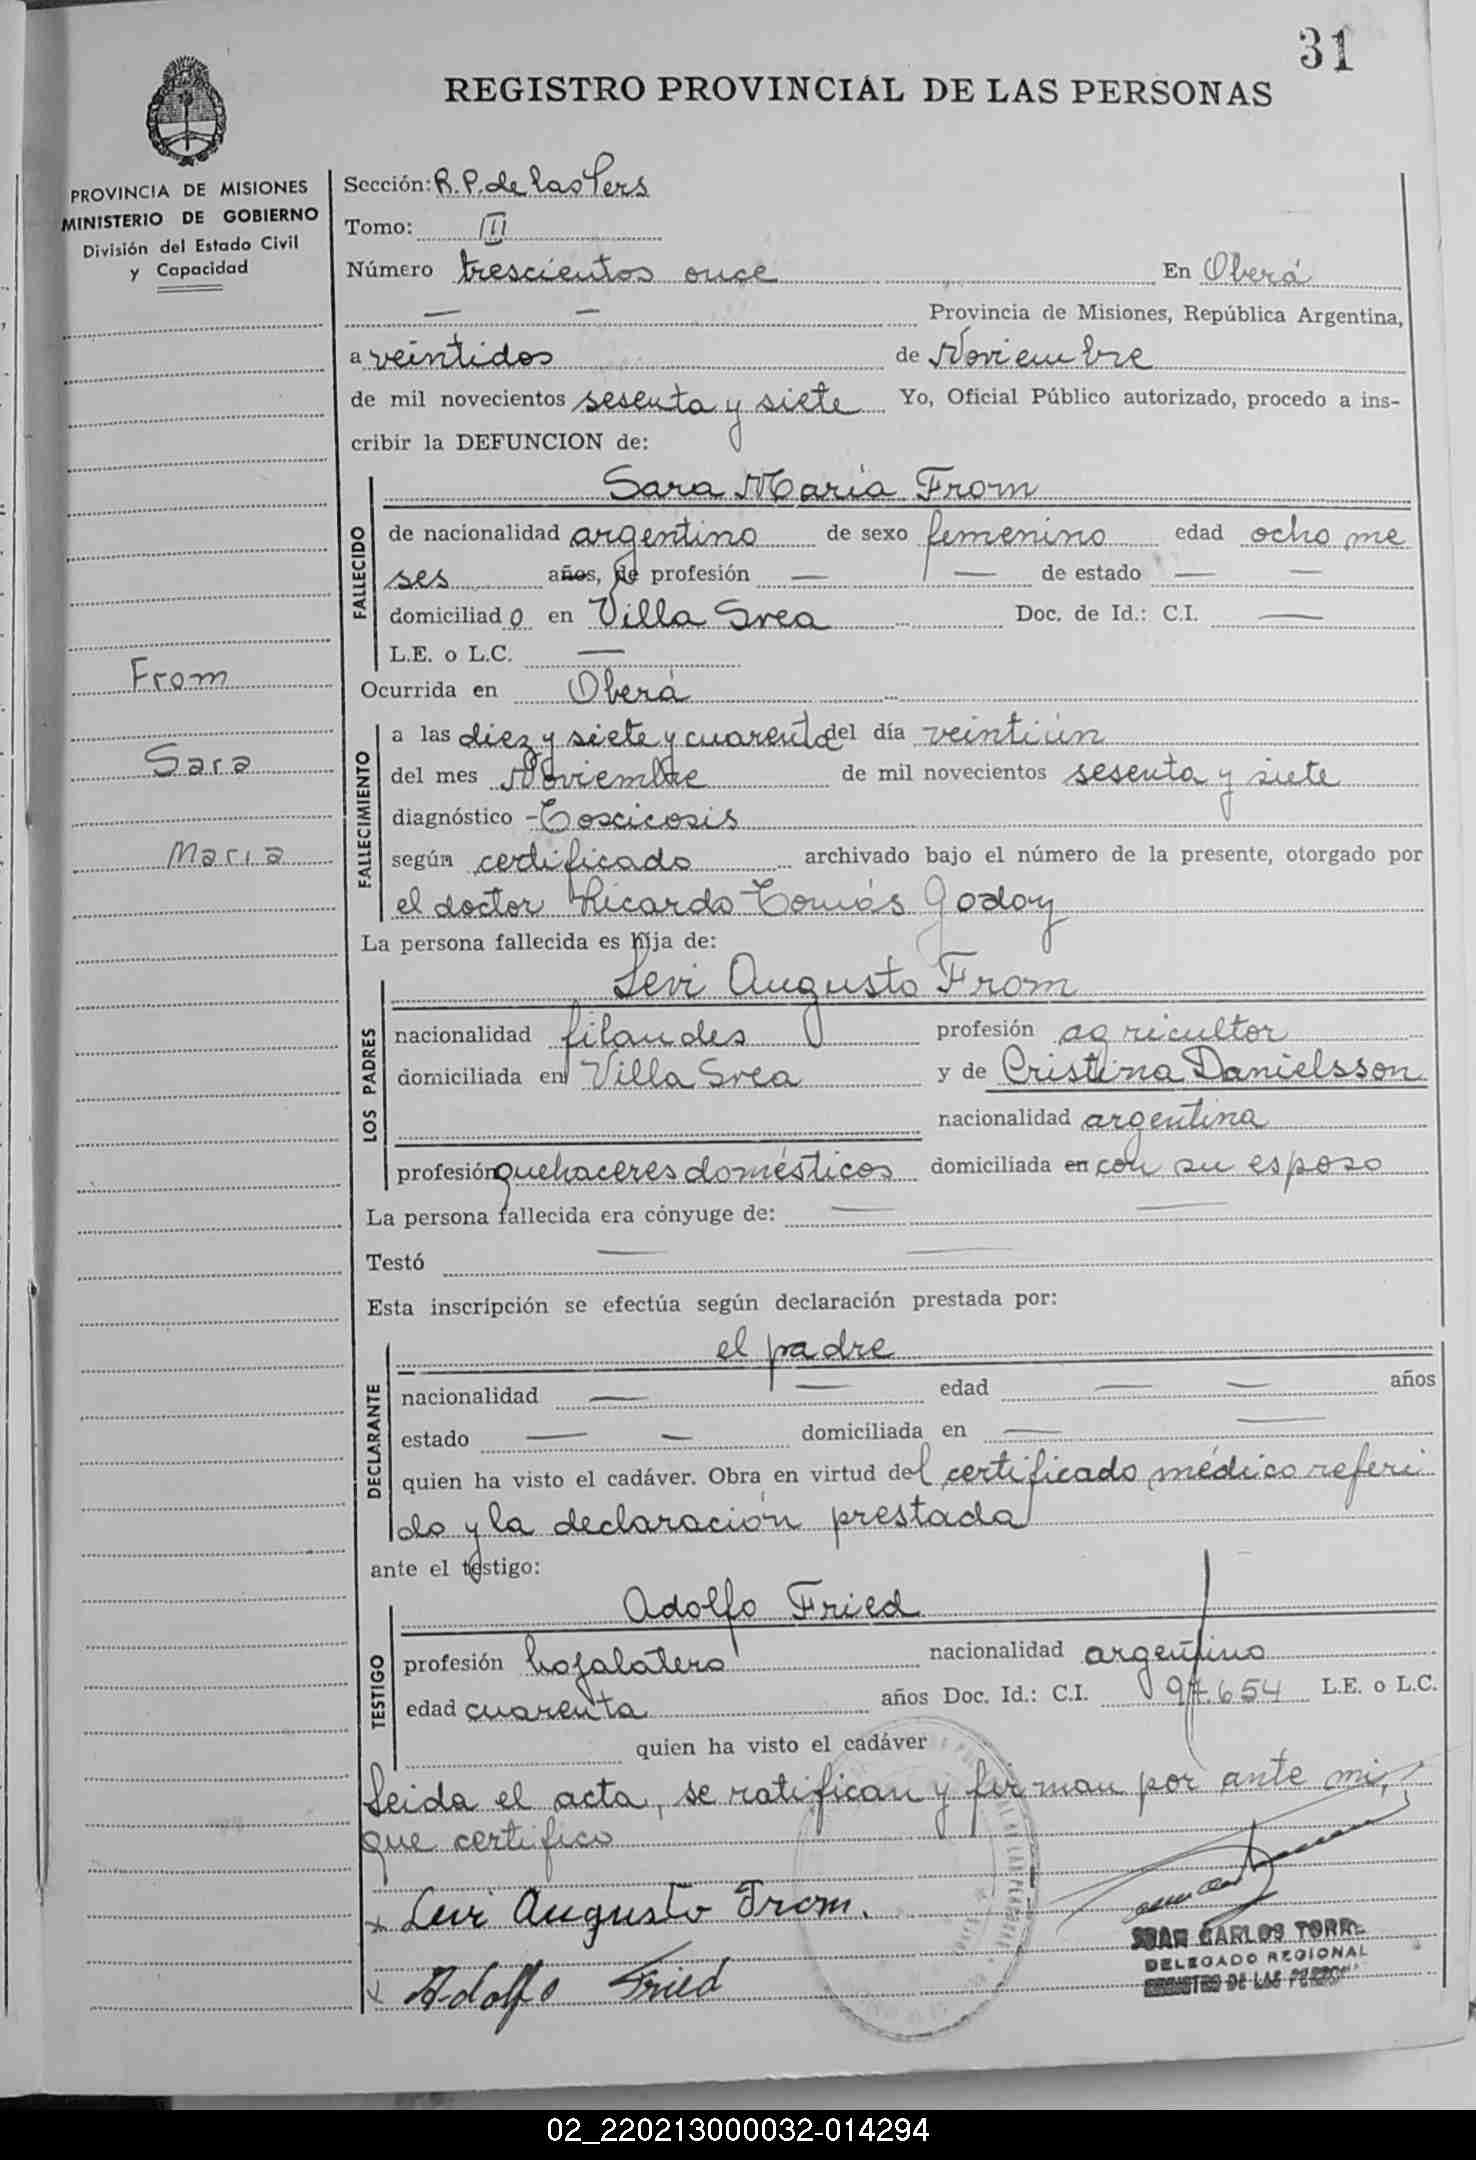 31
REGISTRO PROVINCIAL DE LAS PERSONAS
PROVINCIA DE MISIONES
MINISTERIO DE GOBIERNO
División del Estado Civil
y Capacidad
From
Sara
Maria
Sección: R.P. de las Pers
Tomo: III
Número trescientos once En Oberá
— — Provincia de Misiones, República Argentina,
a veintidos de Noviembre
de mil novecientos sesenta y siete Yo, Oficial Público autorizado, procedo a ins-
cribir la DEFUNCION de:
Sara María From
FALLECIDO
de nacionalidad argentino de sexo femenino edad ocho me
ses años, de profesión — — de estado — —
domiciliado en Villa Svea Doc. de Id.: C.I. —
L.E. o L.C. —
Ocurrida en Oberá
FALLECIMIENTO
a las diez y siete y cuarenta del día veintiún
del mes Noviembre de mil novecientos sesenta y siete
diagnóstico - Toxicosis
según certificado archivado bajo el número de la presente, otorgado por
el doctor Ricardo Tomás Godoy
La persona fallecida es hija de:
Levi Augusto From
LOS PADRES
nacionalidad filandes profesión agricultor
domiciliada en Villa Svea y de Cristina Danielsson
nacionalidad argentina
profesión quehaceres domésticos domiciliada en con su esposo
La persona fallecida era cónyuge de: — —
Testó — —
Esta inscripción se efectúa según declaración prestada por:
el padre
DECLARANTE
nacionalidad — — edad — — años
estado — — domiciliada en — —
quien ha visto el cadáver. Obra en virtud del certificado médico referi
do y la declaración prestada
ante el testigo:
Adolfo Fried
TESTIGO
profesión hojalatero nacionalidad argentino
edad cuarenta años Doc. Id.: C.I. 97.654 L.E. o L.C.
quien ha visto el cadáver
Leida el acta, se ratifican y firman por ante mi,
que certifico
x Levi Augusto From.
x Adolfo Fried
JUAN CARLOS TORRE
DELEGADO REGIONAL
REGISTRO DE LAS PERSON
02_220213000032-014294